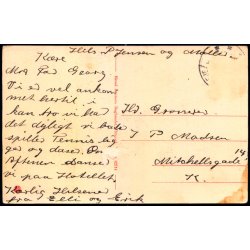 Hils P Jensen og Møller
Kære
Mor Far Georg
Vi er vel ankom
met hertil. I
kan tro vi har
det dejligt vi bade
spiller Tennis
og danser. Om
Aftenen danse
vi paa Hotellet
Kærlig Hilsener
fra Elli og Erik
Hr. Grosserer
J P Madsen
Mitchellsgade 14
K.